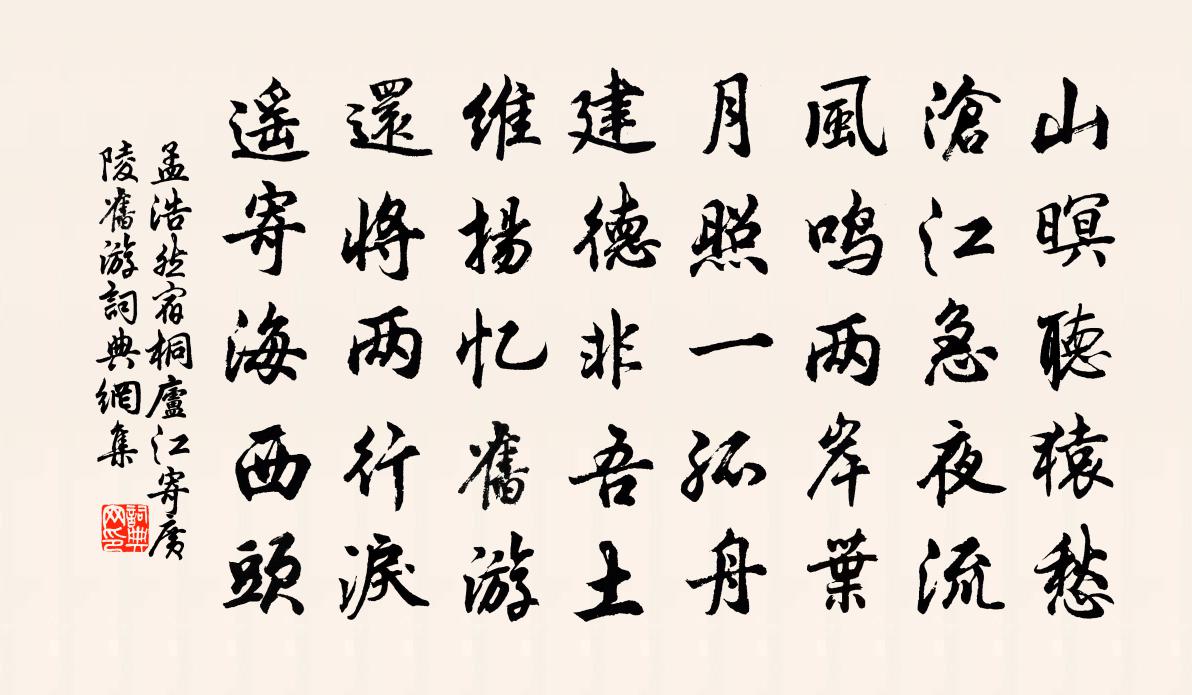 山暝聽猿愁
滄江急夜流
風鳴两岸葉
月照一孤舟
建德非吾土
維揚忆舊游
還將两行淚
遥寄海西頭
孟浩然宿桐廬江寄廣
陵舊游詞典網集
詞典
网印